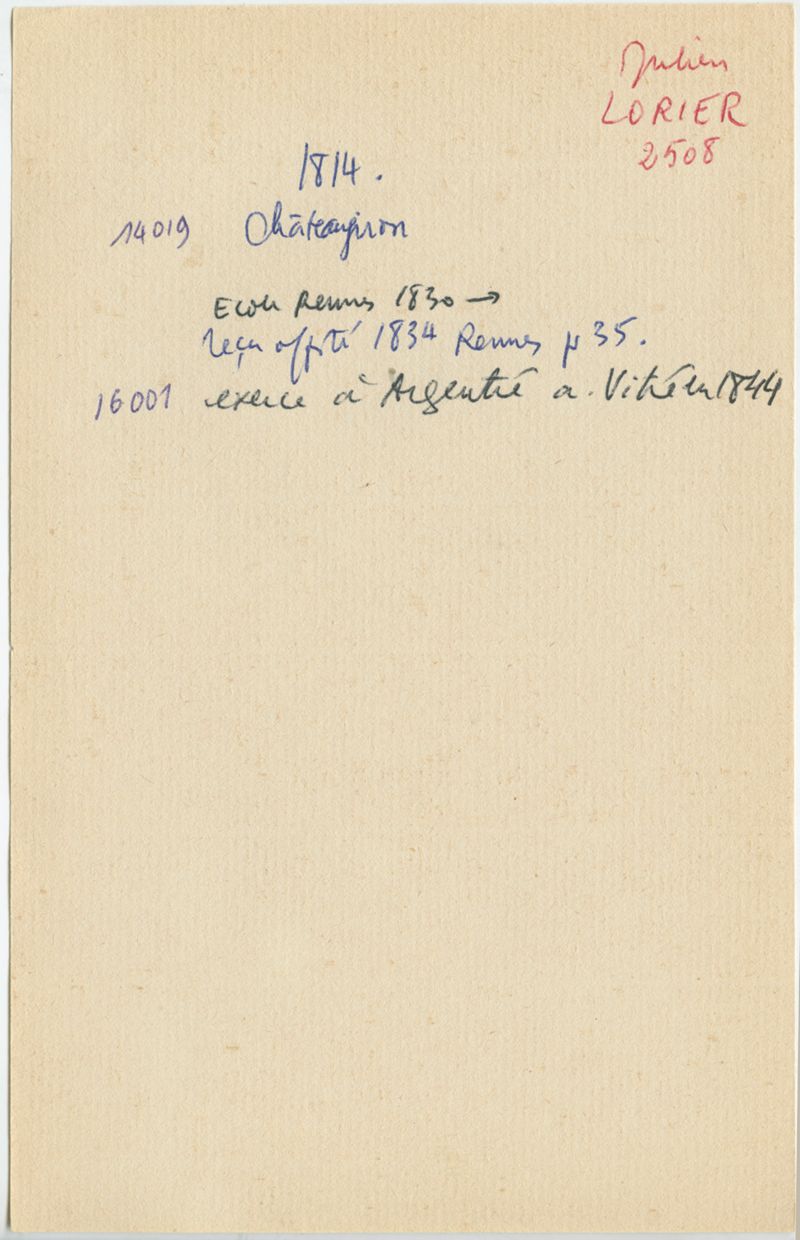 Julien
LORIER
2508
1814.
14019 Châteaugiron
Ecole Rennes 1830 →
reçu offté 1834 Rennes p 35.
16001 exerce à Argentré a. Vitré en 1844